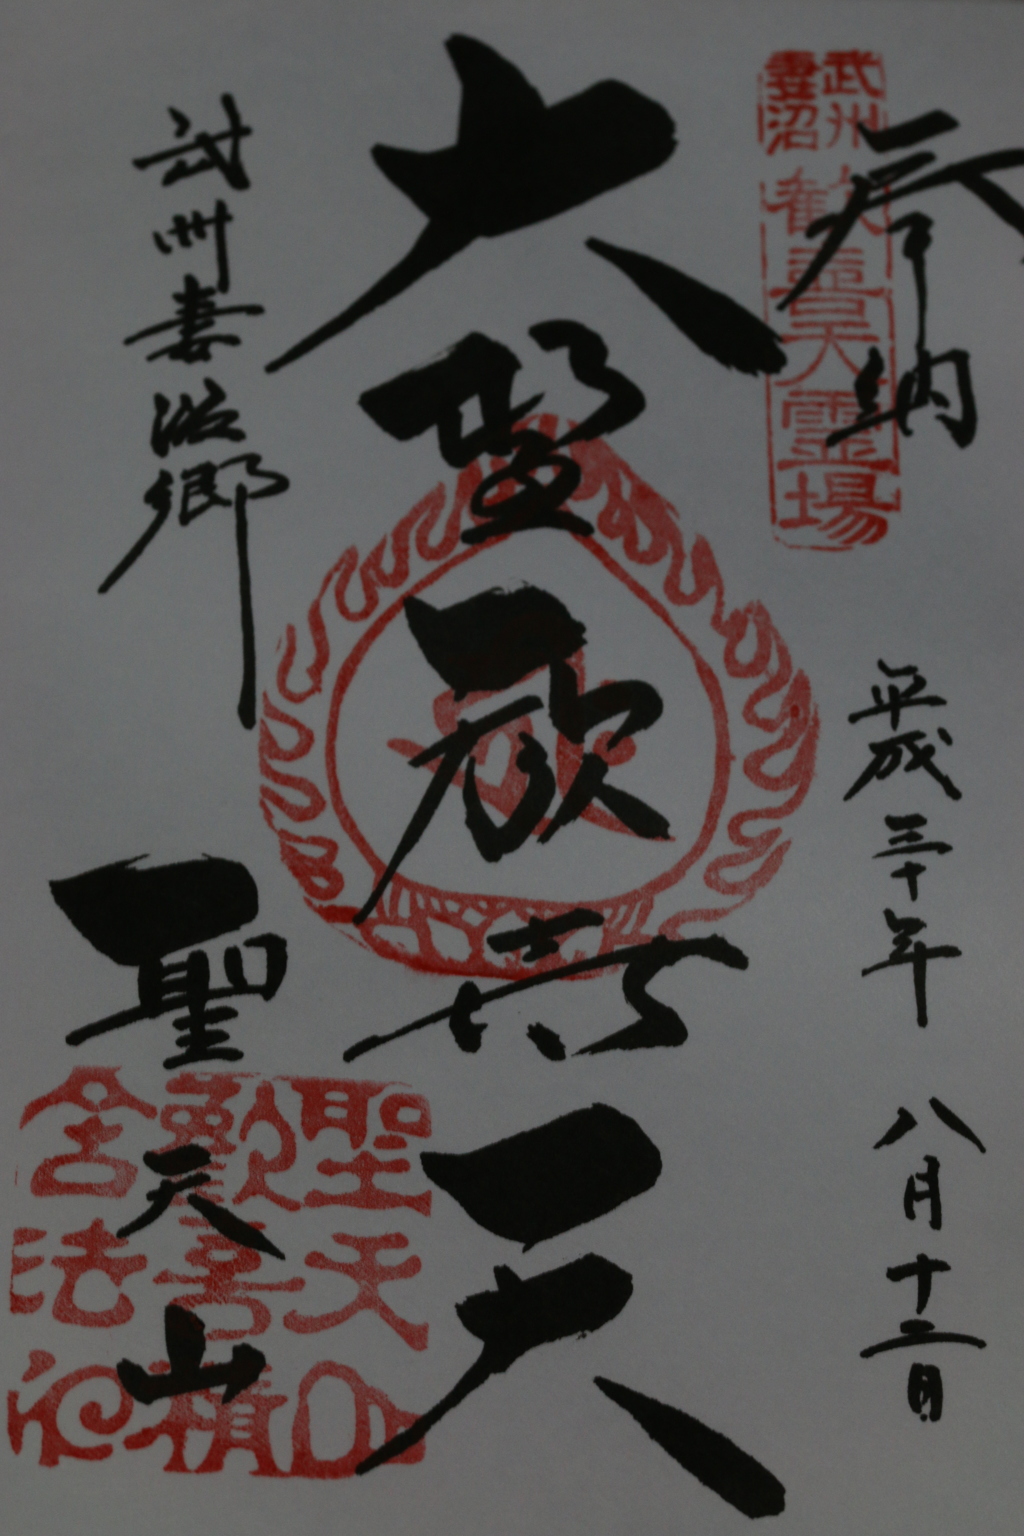 奉納
武州
妻沼
歓喜天霊場
平成三十年
八月十二日
大聖歓喜天
武州妻沼郷
聖天山
聖天山
歓喜院